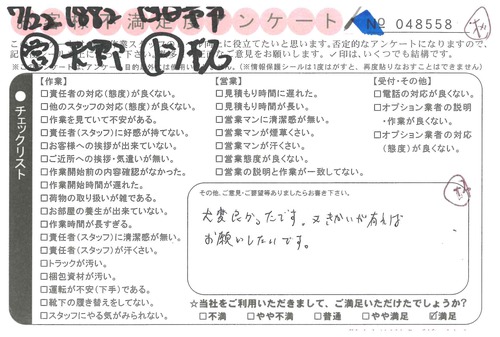 満足度アンケート
No 048558
に役立てたいと思います。否定的なアンケートになりますので、
ご意見をお願いします。✓印は、いくつでも結構です。
(※情報保護シールは1度はがすと、再度貼りなおすことはできません)
●チェックリスト
【作業】
□責任者の対応(態度)が良くない。
□他のスタッフの対応(態度)が良くない。
□作業を見ていて不安がある。
□責任者(スタッフ)に好感が持てない。
□お客様への挨拶が出来ていない。
□ご近所への挨拶・気遣いが無い。
□作業開始前の内容確認がなかった。
□作業開始時間が遅れた。
□荷物の取り扱いが雑である。
□お部屋の養生が出来ていない。
□作業時間が長すぎる。
□責任者(スタッフ)に清潔感が無い。
□責任者(スタッフ)が汗くさい。
□トラックが汚い。
□梱包資材が汚い。
□運転が不安(下手)である。
□靴下の履き替えをしてない。
□スタッフにやる気がみられない。
【営業】
□見積もり時間に遅れた。
□見積もり時間が長い。
□営業マンに清潔感が無い。
□営業マンが煙草くさい。
□営業マンが汗くさい。
□営業態度が良くない。
□営業の説明と作業が一致してない。
【受付・その他】
□電話の対応が良くない。
□オプション業者の説明
・作業が良くない。
□オプション業者の対応
(態度)が良くない。
その他、ご意見・ご要望等ありましたらお書き下さい。
大変良かったです。又きかいが有れば
お願いしたいです。
☆当社をご利用いただきまして、ご満足いただけたでしょうか?
□不満 □やや不満 □普通 □やや満足 ☑満足